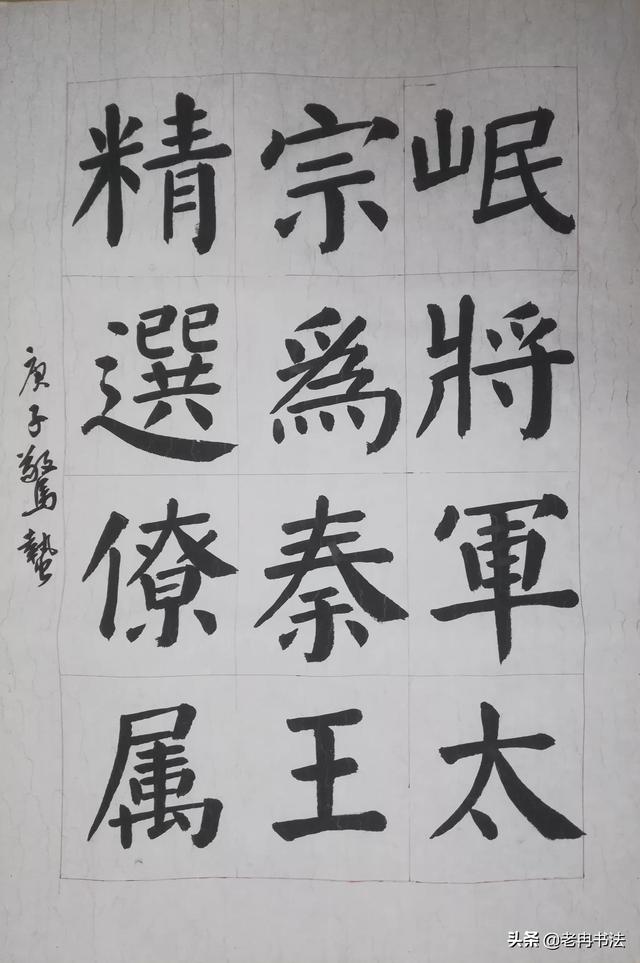 岷將軍太
宗為秦王
精選僚属
庚子驚蟄
头条 @老冉书法